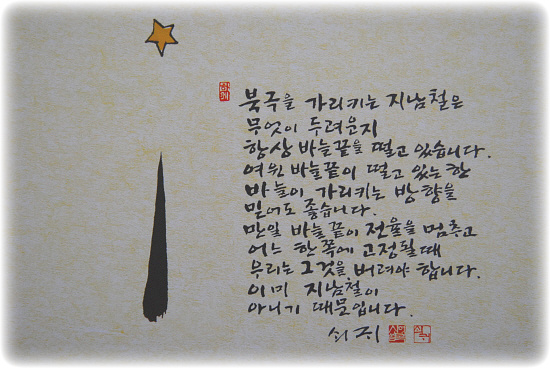 북극을 가리키는 지남철은
무엇이 두려운지
항상 바늘끝을 떨고 있습니다.
여윈 바늘끝이 떨고 있는 한
바늘이 가리키는 방향을
믿어도 좋습니다.
만일 바늘끝이 전율을 멈추고
어느 한쪽에 고정될 때
우리는 그것을 버려야 합니다.
이미 지남철이
아니기 때문입니다.